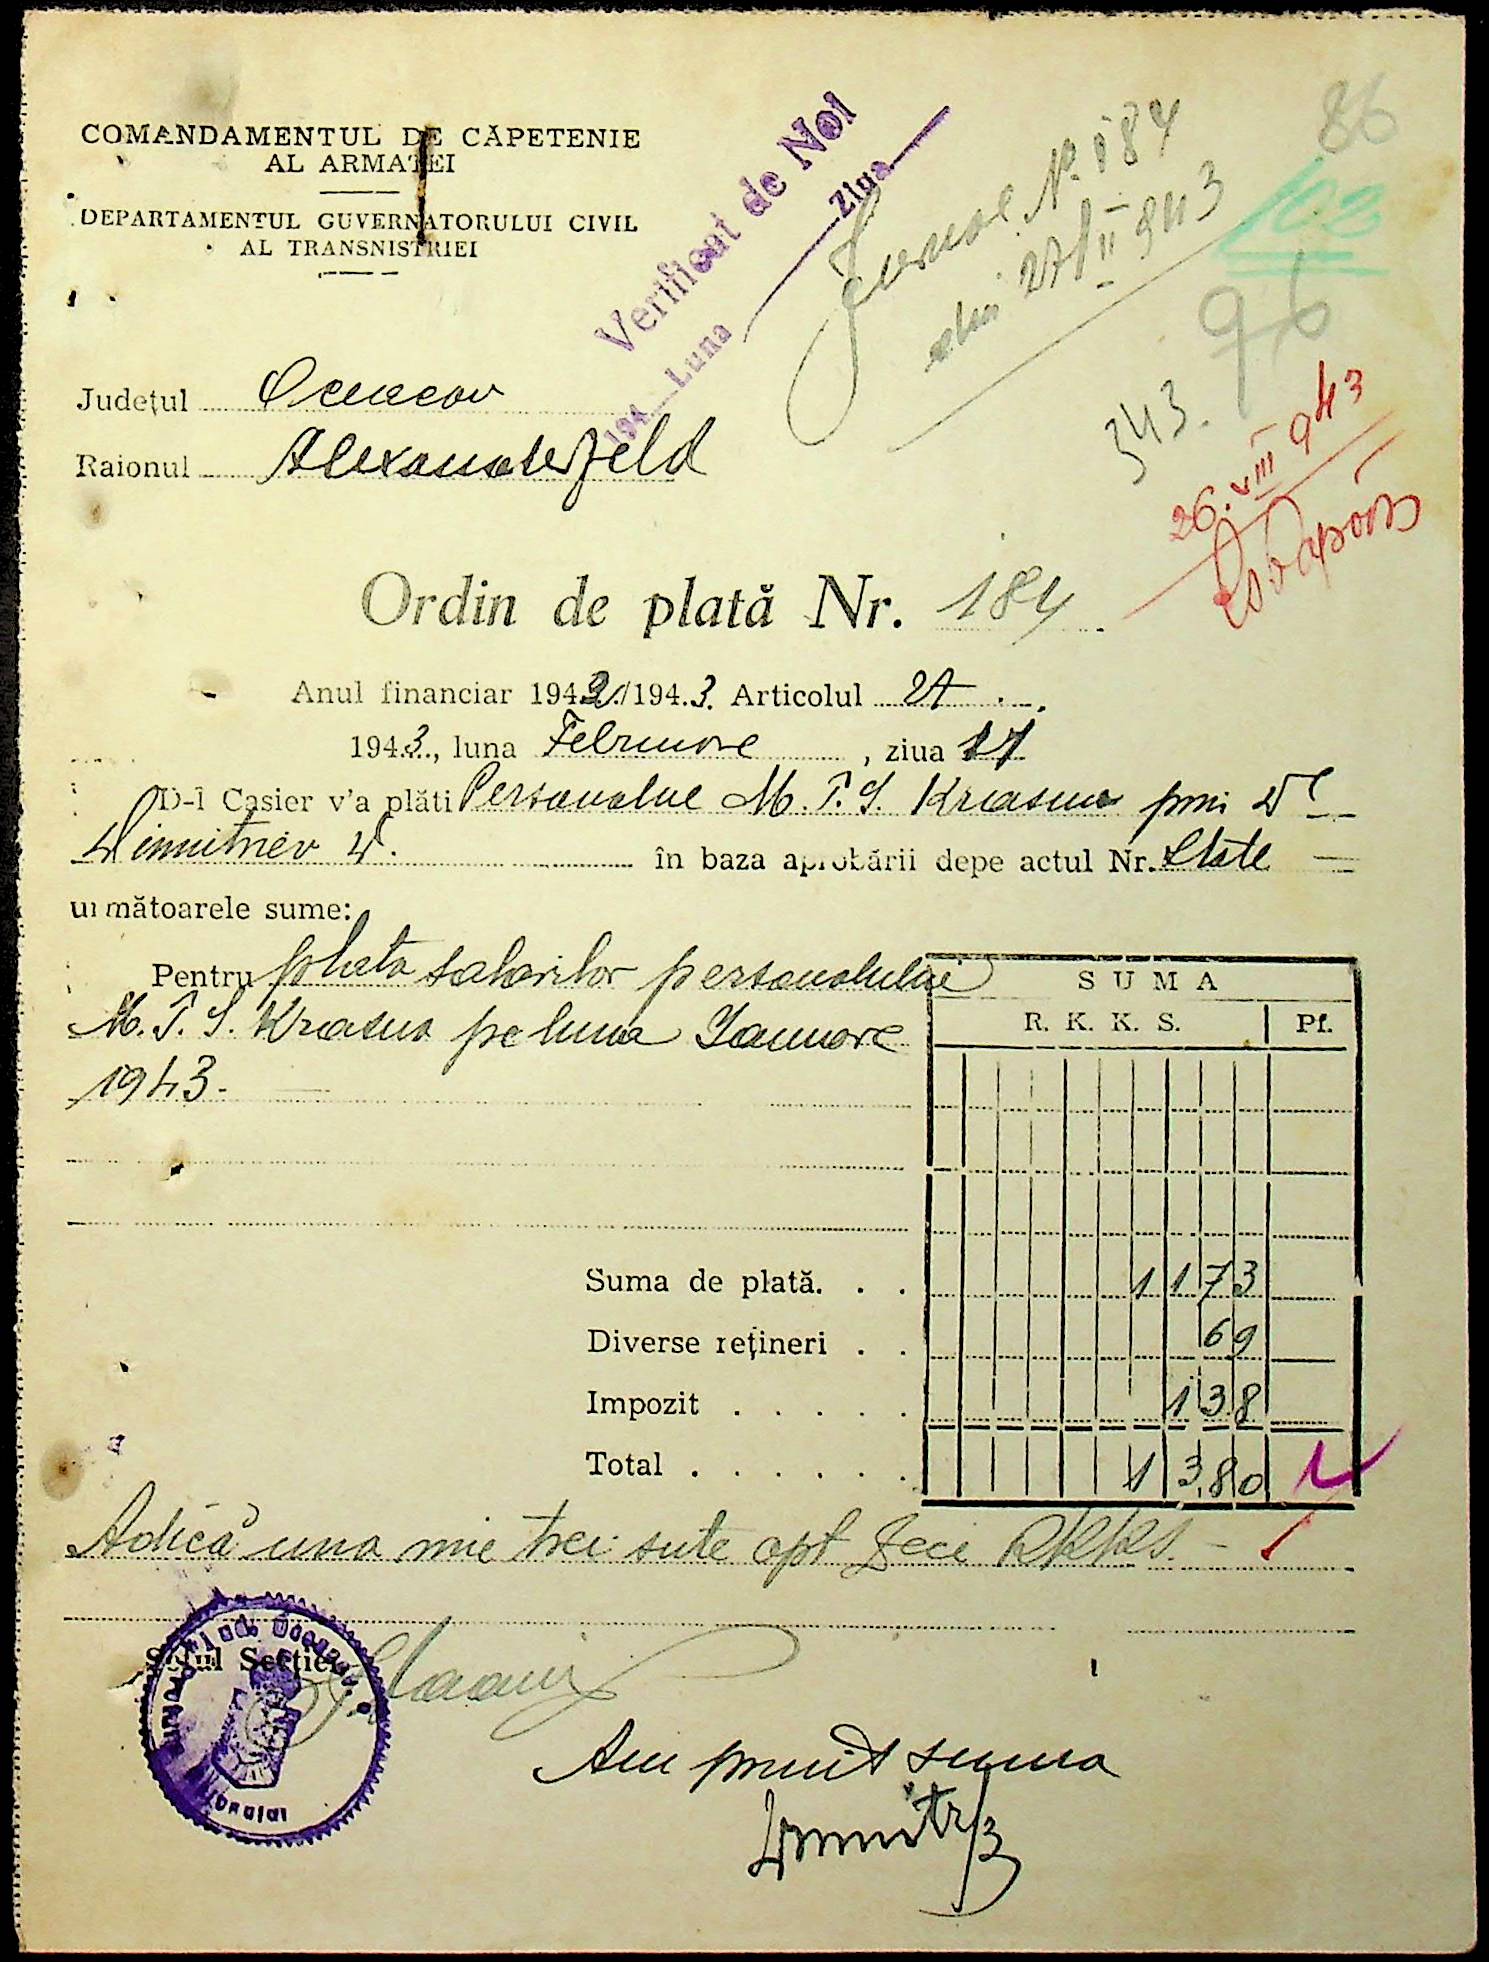 COMANDAMENTUL DE CĂPETENIE
AL ARMATEI
DEPARTAMENTUL GUVERNATORULUI CIVIL
AL TRANSNISTRIEI
Verificat de Noi
194 Luna Ziua
Jurnal No. 184
din 27/II 943
86
102
96
343.
26.VIII 943
Județul Oceacov
Raionul Alexanderfeld
Ordin de plată Nr. 184
Anul financiar 1942/1943. Articolul 27
1943, luna Februarie, ziua 27
D-l Casier v'a plăti Personalul M.T.S. Kriasna prin Dl
Dimitriev D. în baza aprobării depe actul Nr. State
următoarele sume:
Pentru plata salariilor personalului
M.T.S. Kriasna pe luna Ianuarie
1943.-
SUMA
R. K. K. S. Pf.
Suma de plată. . . 1173
Diverse rețineri . . 69
Impozit . . . . . 138
Total . . . . . . 1380
Adică una mie trei sute opt zeci RKKS.-
Șeful Secției
Am primit suma